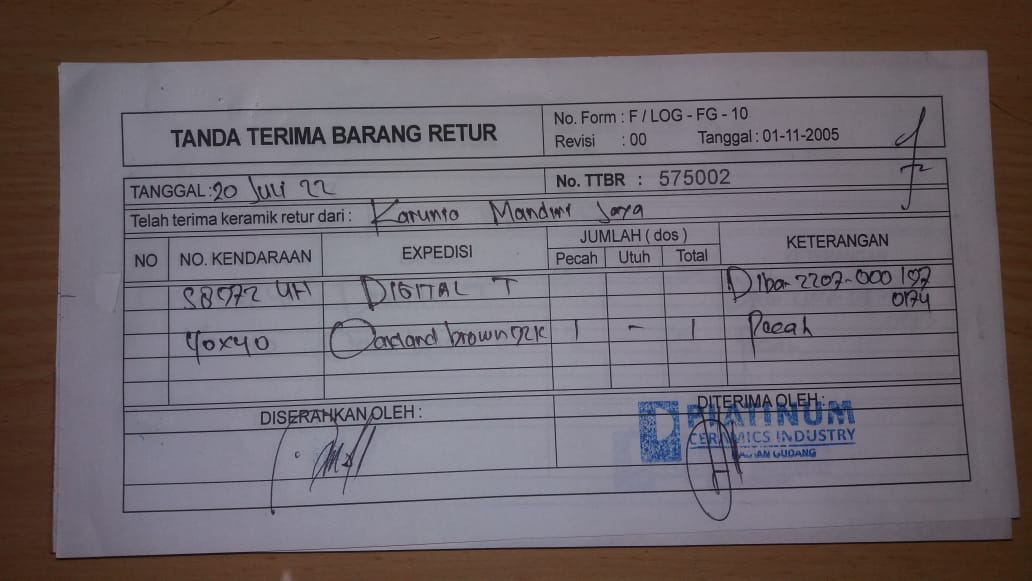 TANDA TERIMA BARANG RETUR
No. Form : F / LOG - FG - 10
Revisi : 00 Tanggal : 01-11-2005
TANGGAL : 20 Juli 22
No. TTBR : 575002
Telah terima keramik retur dari : Karunia Mandiri Jaya
NO NO. KENDARAAN EXPEDISI JUMLAH ( dos ) KETERANGAN
Pecah Utuh Total
DIGITAL T 2207-000197
0174
40x40 brown 1 - 1 Pecah
DISERAHKAN OLEH : DITERIMA OLEH :
PLATINUM
CERAMICS INDUSTRY
BAGIAN GUDANG